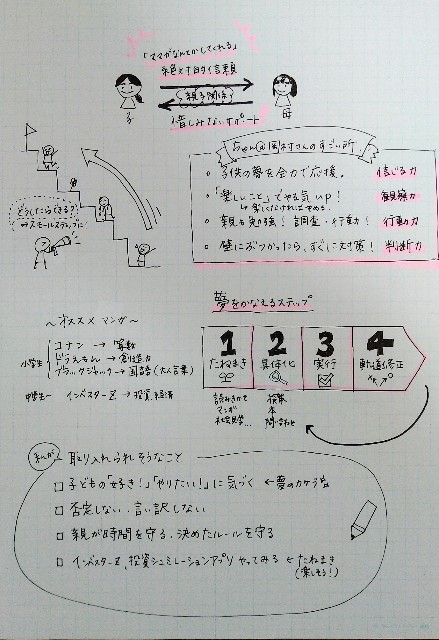 「ママがなんとかしてくれる」
絶対的信頼
親子関係
子
母
惜しみないサポート
ちゃん@岡村さんのすごい所
・子供の夢を全力で応援。 信じる力
・「楽しいこと」でやる気up! 観察力
・親も勉強!調査・行動! 行動力
・壁にぶつかったら、すぐに対策! 判断力
どうしたらできる?
→スモールステップに
夢をかなえるステップ
1 2 3 4
たねまき 具体化 実行 軌道修正
読みきかせ
マンガ
社会見学…
検索
本
問い合わせ
〜オススメマンガ〜
小学生
コナン → 算数
どうえもん → 創造力
ブラックジャック → 国語(大人言葉)
中学生〜 インベスターZ → 投資、経済
私が
取り入れられそうなこと
□ 子どもの「好き!」「やりたい!」に気づく ←夢のカケラ
□ 否定しない、言い訳しない
□ 親が時間を守る、決めたルールを守る
□ インベスターZ、投資シュミレーションアプリ やってみる ← たねまき
(楽しそう!)